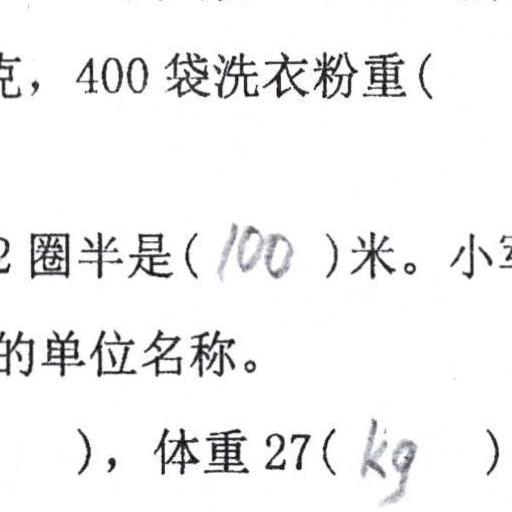 克，400 袋洗衣粉重(
2 圈半是( 100 )米。小军
的单位名称。
)，体重 27( kg )